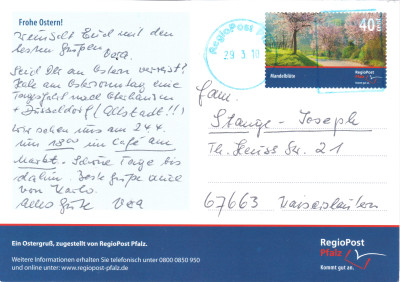 Frohe Ostern!
wünscht Euch mit den
besten Grüßen
Vera.
Seid Ihr an Ostern verreist?
Habe am Ostersonntag eine
Tagesfahrt nach Oberhausen
+ Düsseldorf (Altstadt!!!)
Wir sehen uns am 24.4.
um 18⁰⁰ im Café am
Markt. Schöne Tage bis
dahin. Beste Grüße auch
von
Alles Gute Vera
RegioPost Pfalz
29 3 10
40
Mandelblüte
RegioPost
Pfalz
Fam.
Stange-Joseph
Th. Heuss Str. 21
67663 Kaiserslautern
Ein Ostergruß, zugestellt von RegioPost Pfalz.
Weitere Informationen erhalten Sie telefonisch unter 0800 0850 950
und online unter: www.regiopost-pfalz.de
RegioPost
Pfalz
Kommt gut an.